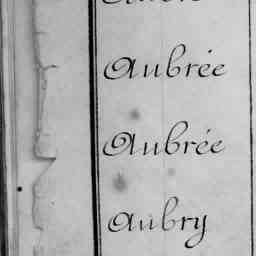 Aubrée
Aubrée
Aubry